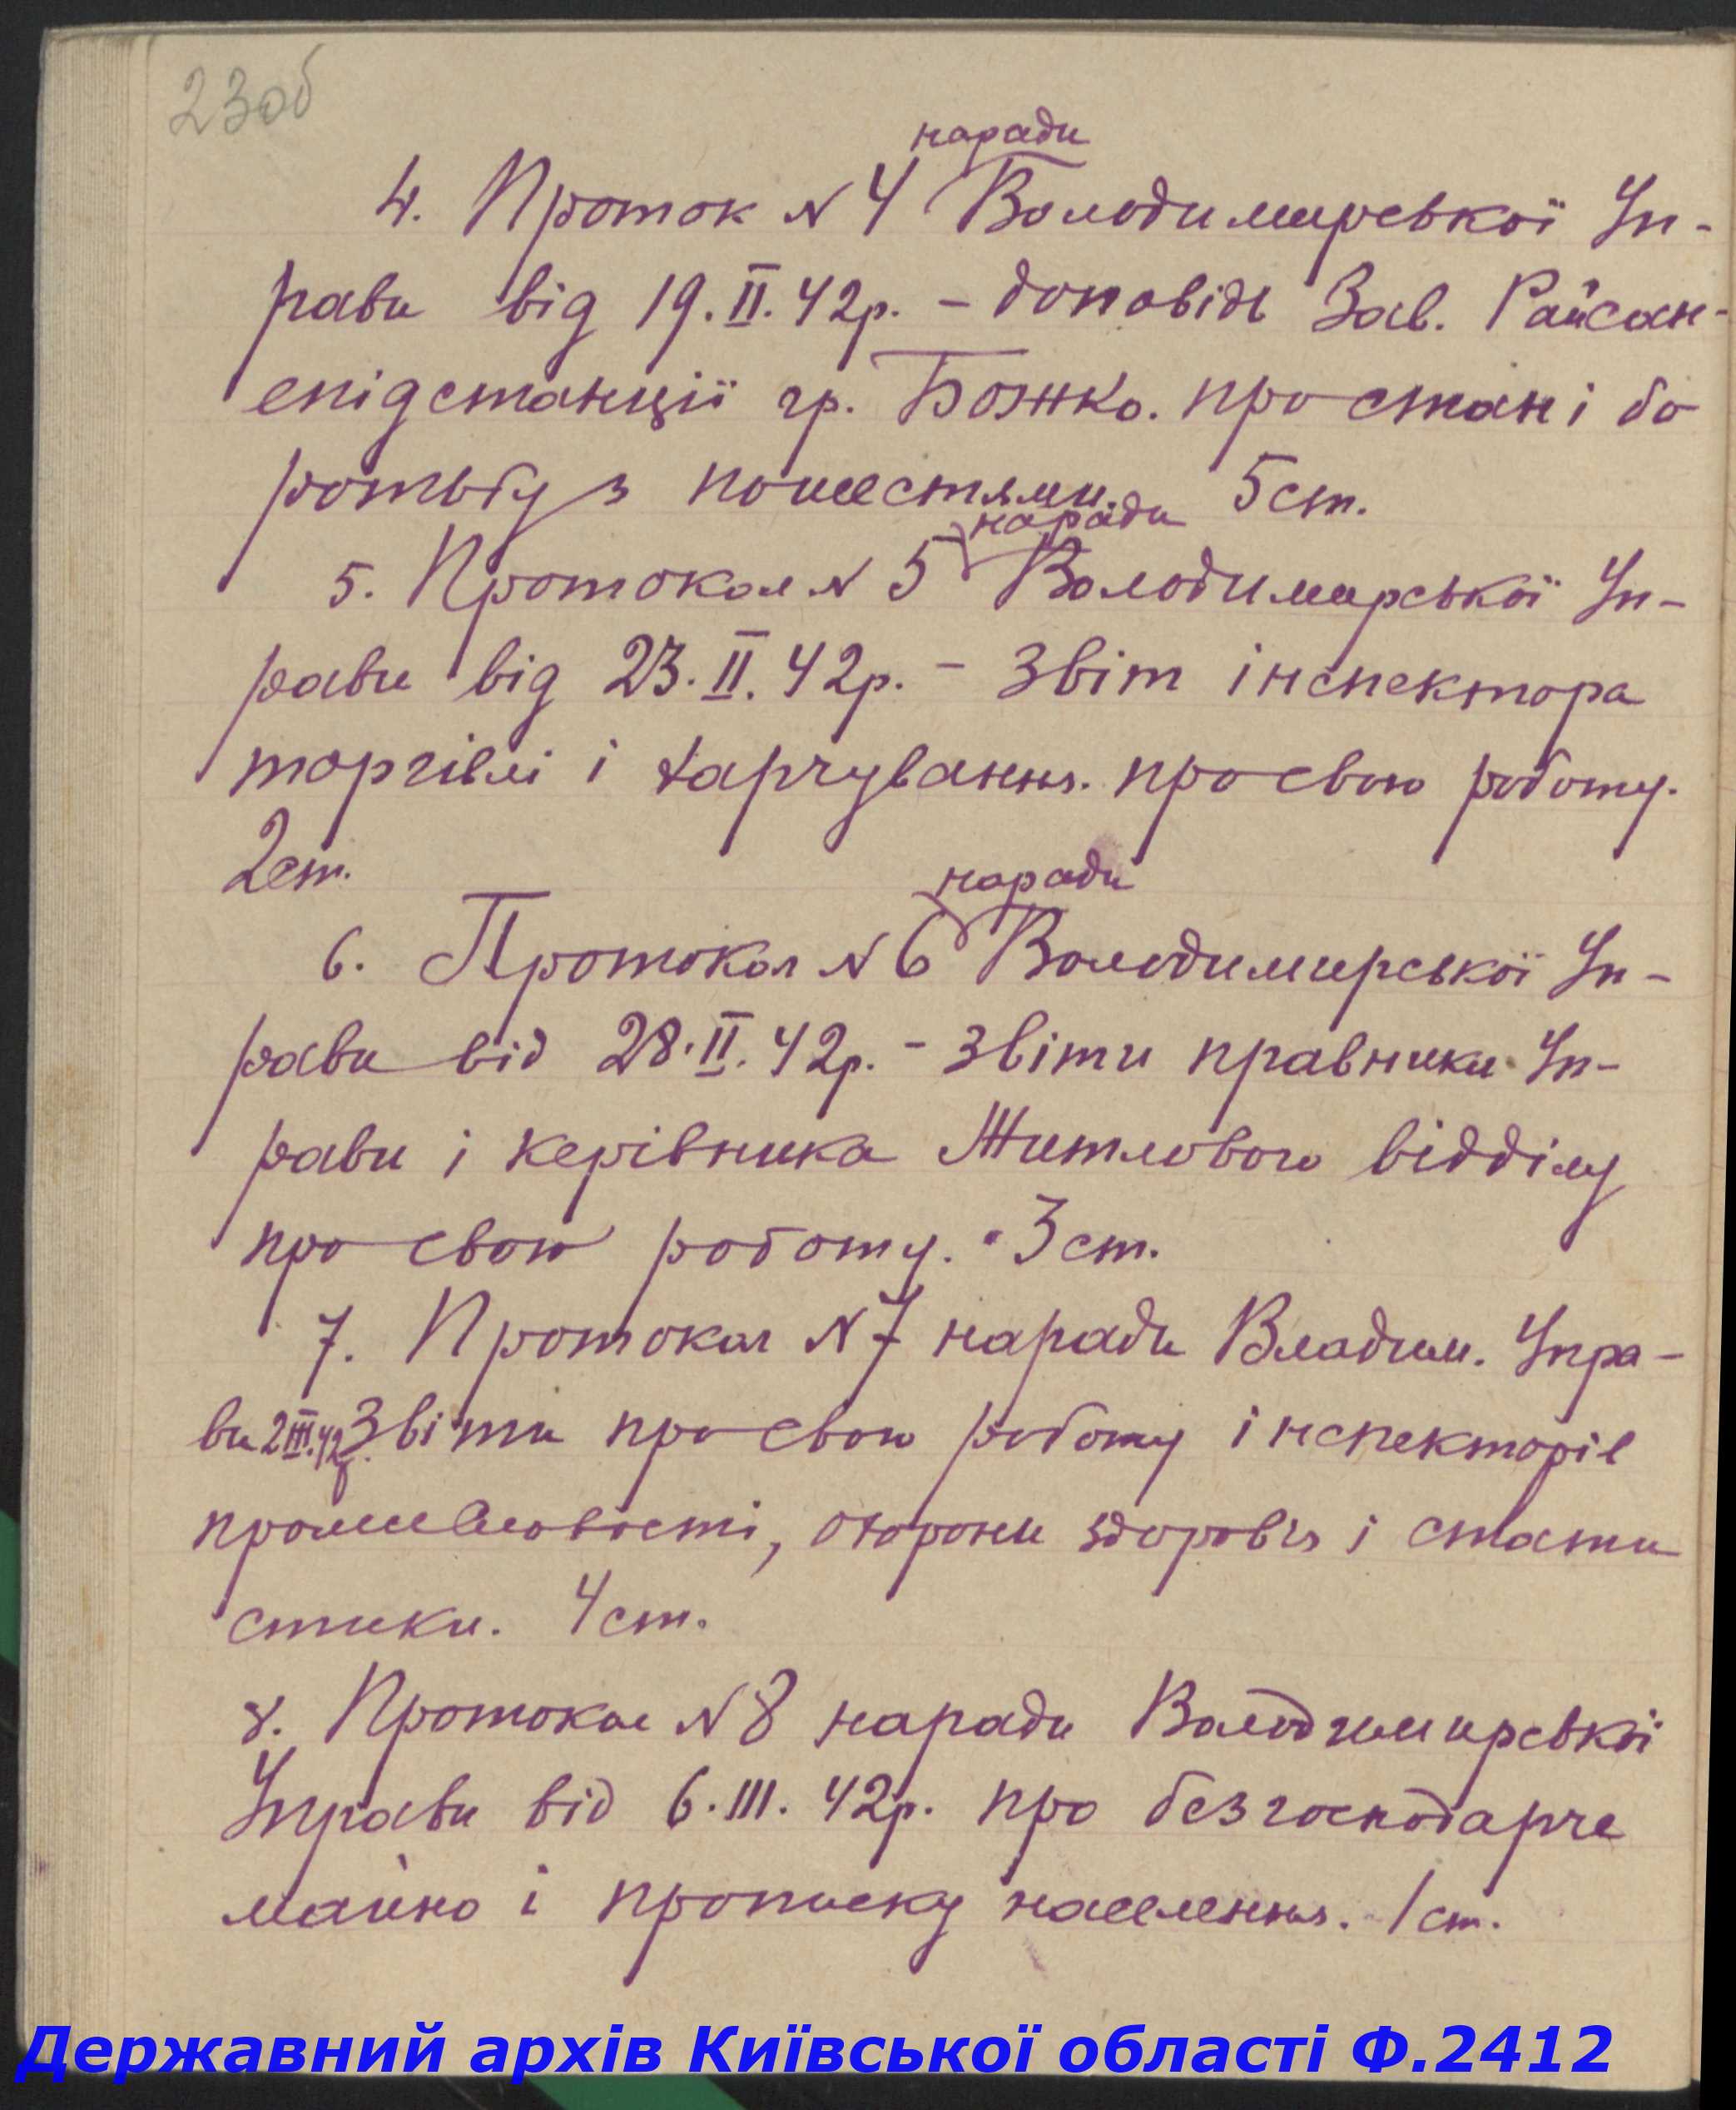 23об
наради
4. Проток № 4 Володимирської Уп-
рави від 19.II.42р. – доповідь Зав. Райсан-
епідстанції гр. Божко. про стан і бо
ротьбу з пошестями. 5ст.
наради
5. Протокол № 5 Володимирської Уп-
рави від 23.II.42р. – Звіт інспектора
торгівлі і харчування. про свою роботу.
2ст.
наради
6. Протокол № 6 Володимирської Уп-
рави від 28.II.42р. – звіти правника Уп-
рави і керівника Житлового відділу
про свою роботу. 3ст.
7. Протокол № 7 наради Владим. Упра-
ви 2III.42р. Звіти про свою роботу інспекторів
промисловості, охорони здоровія і стати
стики. 4ст.
8. Протокол № 8 наради Володимирської
Управи від 6.III.42р. про безгосподарче
майно і прописку населення. 1ст.
Державний архів Київської області Ф.2412